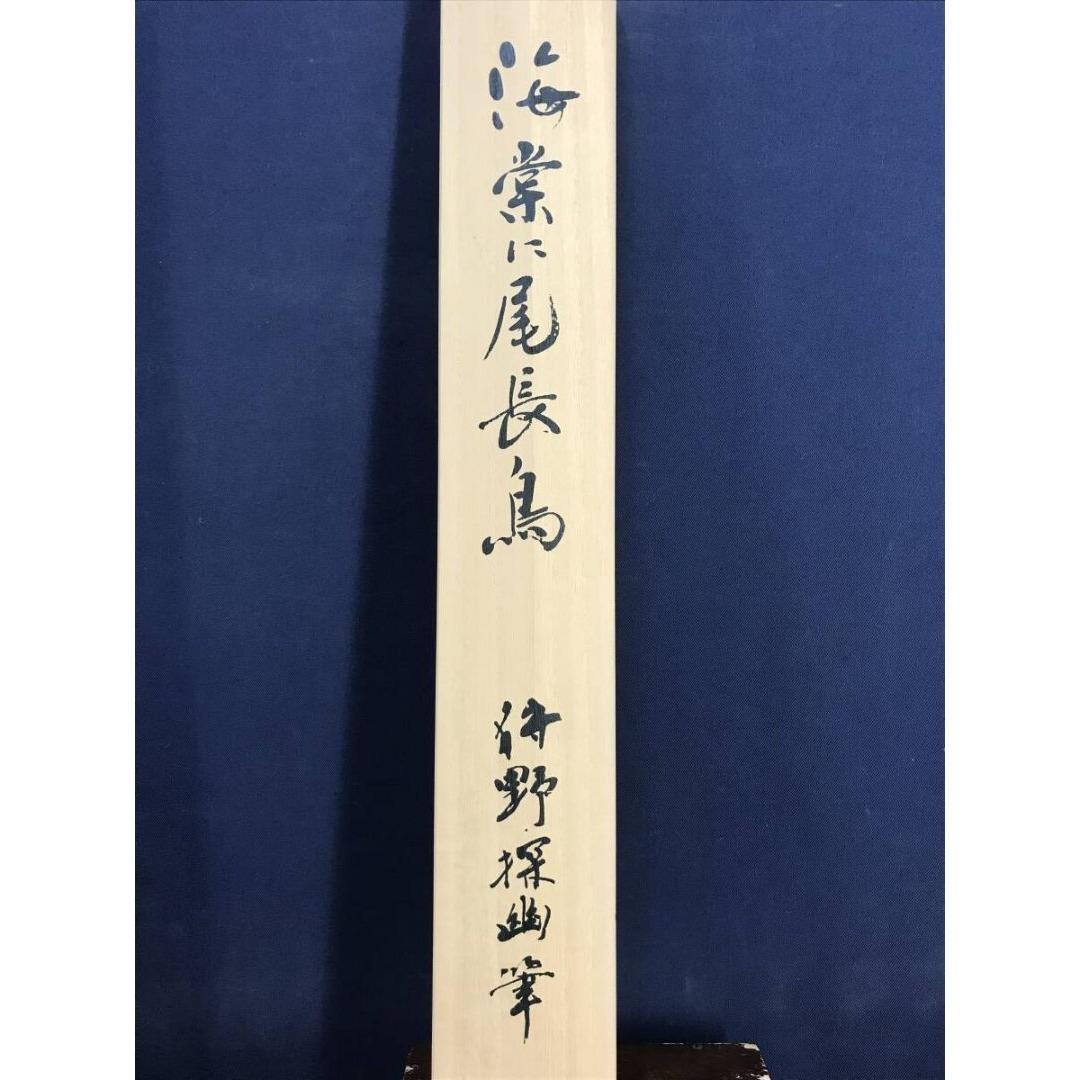 海棠に尾長鳥
狩野探幽筆